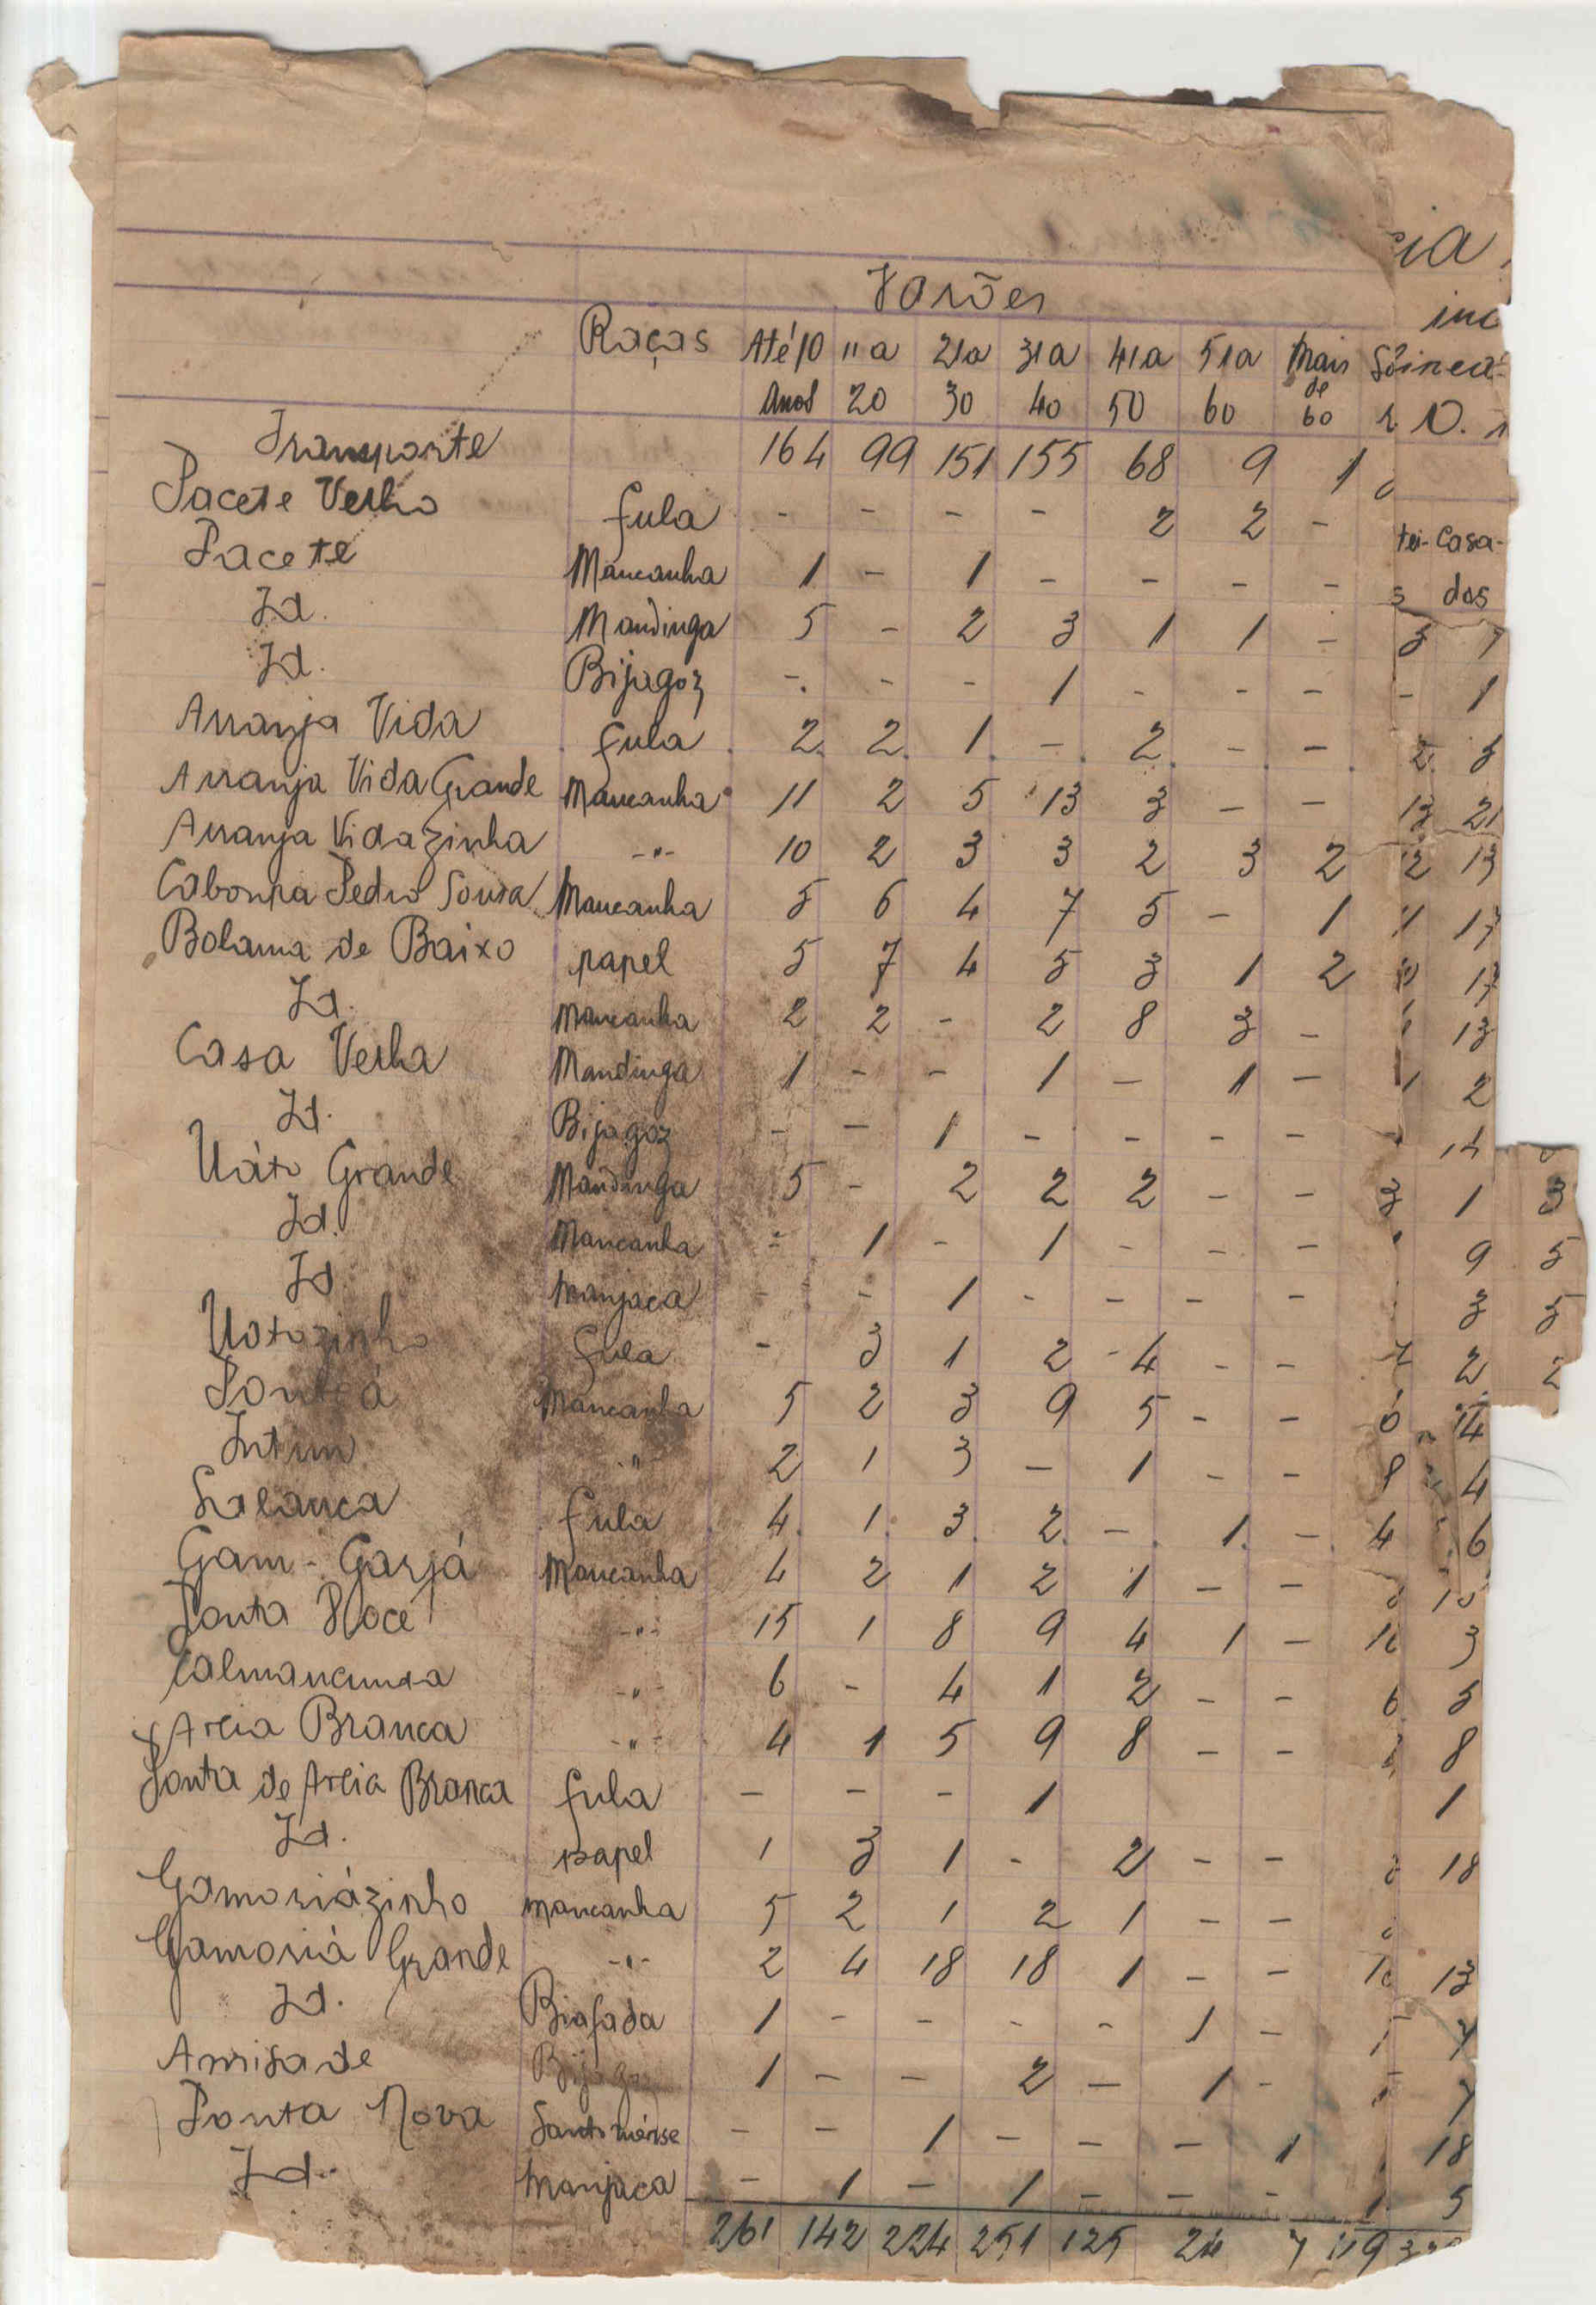 Varões
Raças Até 10 11 a 21 a 31 a 41 a 51 a Mais
Anos 20 30 40 50 60 de 60
Transporte 164 99 151 155 68 9 1
Pacete Velho Fula - - - - 2 2 -
tei- Casa-
Pacete Mancanha 1 - 1 - - - -
s dos
Id. Mandinga 5 - 2 3 1 1 -
Id. Bijagoz - - - 1 - - - - 1
Arranja Vida Fula 2 2 1 - 2 - -
Arranja Vida Grande Mancanha 11 2 5 13 3 - - 13 21
Arranja Vidazinha -"- 10 2 3 3 2 3 2 12 13
Pedro Sousa Mancanha 5 6 4 7 5 - 1
Bolama de Baixo papel 5 7 4 5 3 1 2
Id. Mancanha 2 2 - 2 8 3 - 13
Casa Velha Mandinga 1 - - 1 - 1 - 1 2
Id. Bijagoz - - 1 - - - -
Uáto Grande Mandinga 5 - 2 2 2 - - 3 1 3
Id. Mancanha - 1 - 1 - - - 9 5
Id. Manjaca - - 1 - - - - 3 5
Uatozinho Fula - 3 1 2 4 - - 2 2
Mancanha 5 2 3 9 5 - - 14
Intim " 2 1 3 - 1 - - 8 4
Salanca Fula 4 1 3 2 - 1 - 4 6
Gam-Garjá Mancanha 4 2 1 2 1 - -
Ponta Roce -"- 15 1 8 9 4 1 - 3
-"- 6 - 4 1 2 - - 6 5
Areia Branca -"- 4 1 5 9 8 - - 8
Ponta de Areia Branca Fula - - - 1 1
Id. papel 1 3 1 - 2 - - 18
Gamoriázinho Mancanha 5 2 1 2 1 - -
Gamoriá Grande -"- 2 4 18 18 1 - - 13
Id. Biafada 1 - - - - 1 -
Amisade Bijagoz 1 - - 2 - 1 -
Ponta Nova Santomense - - 1 - - - 1 18
Id. Manjaca - 1 - 1 - - - 1 5
261 142 224 251 125 24 7